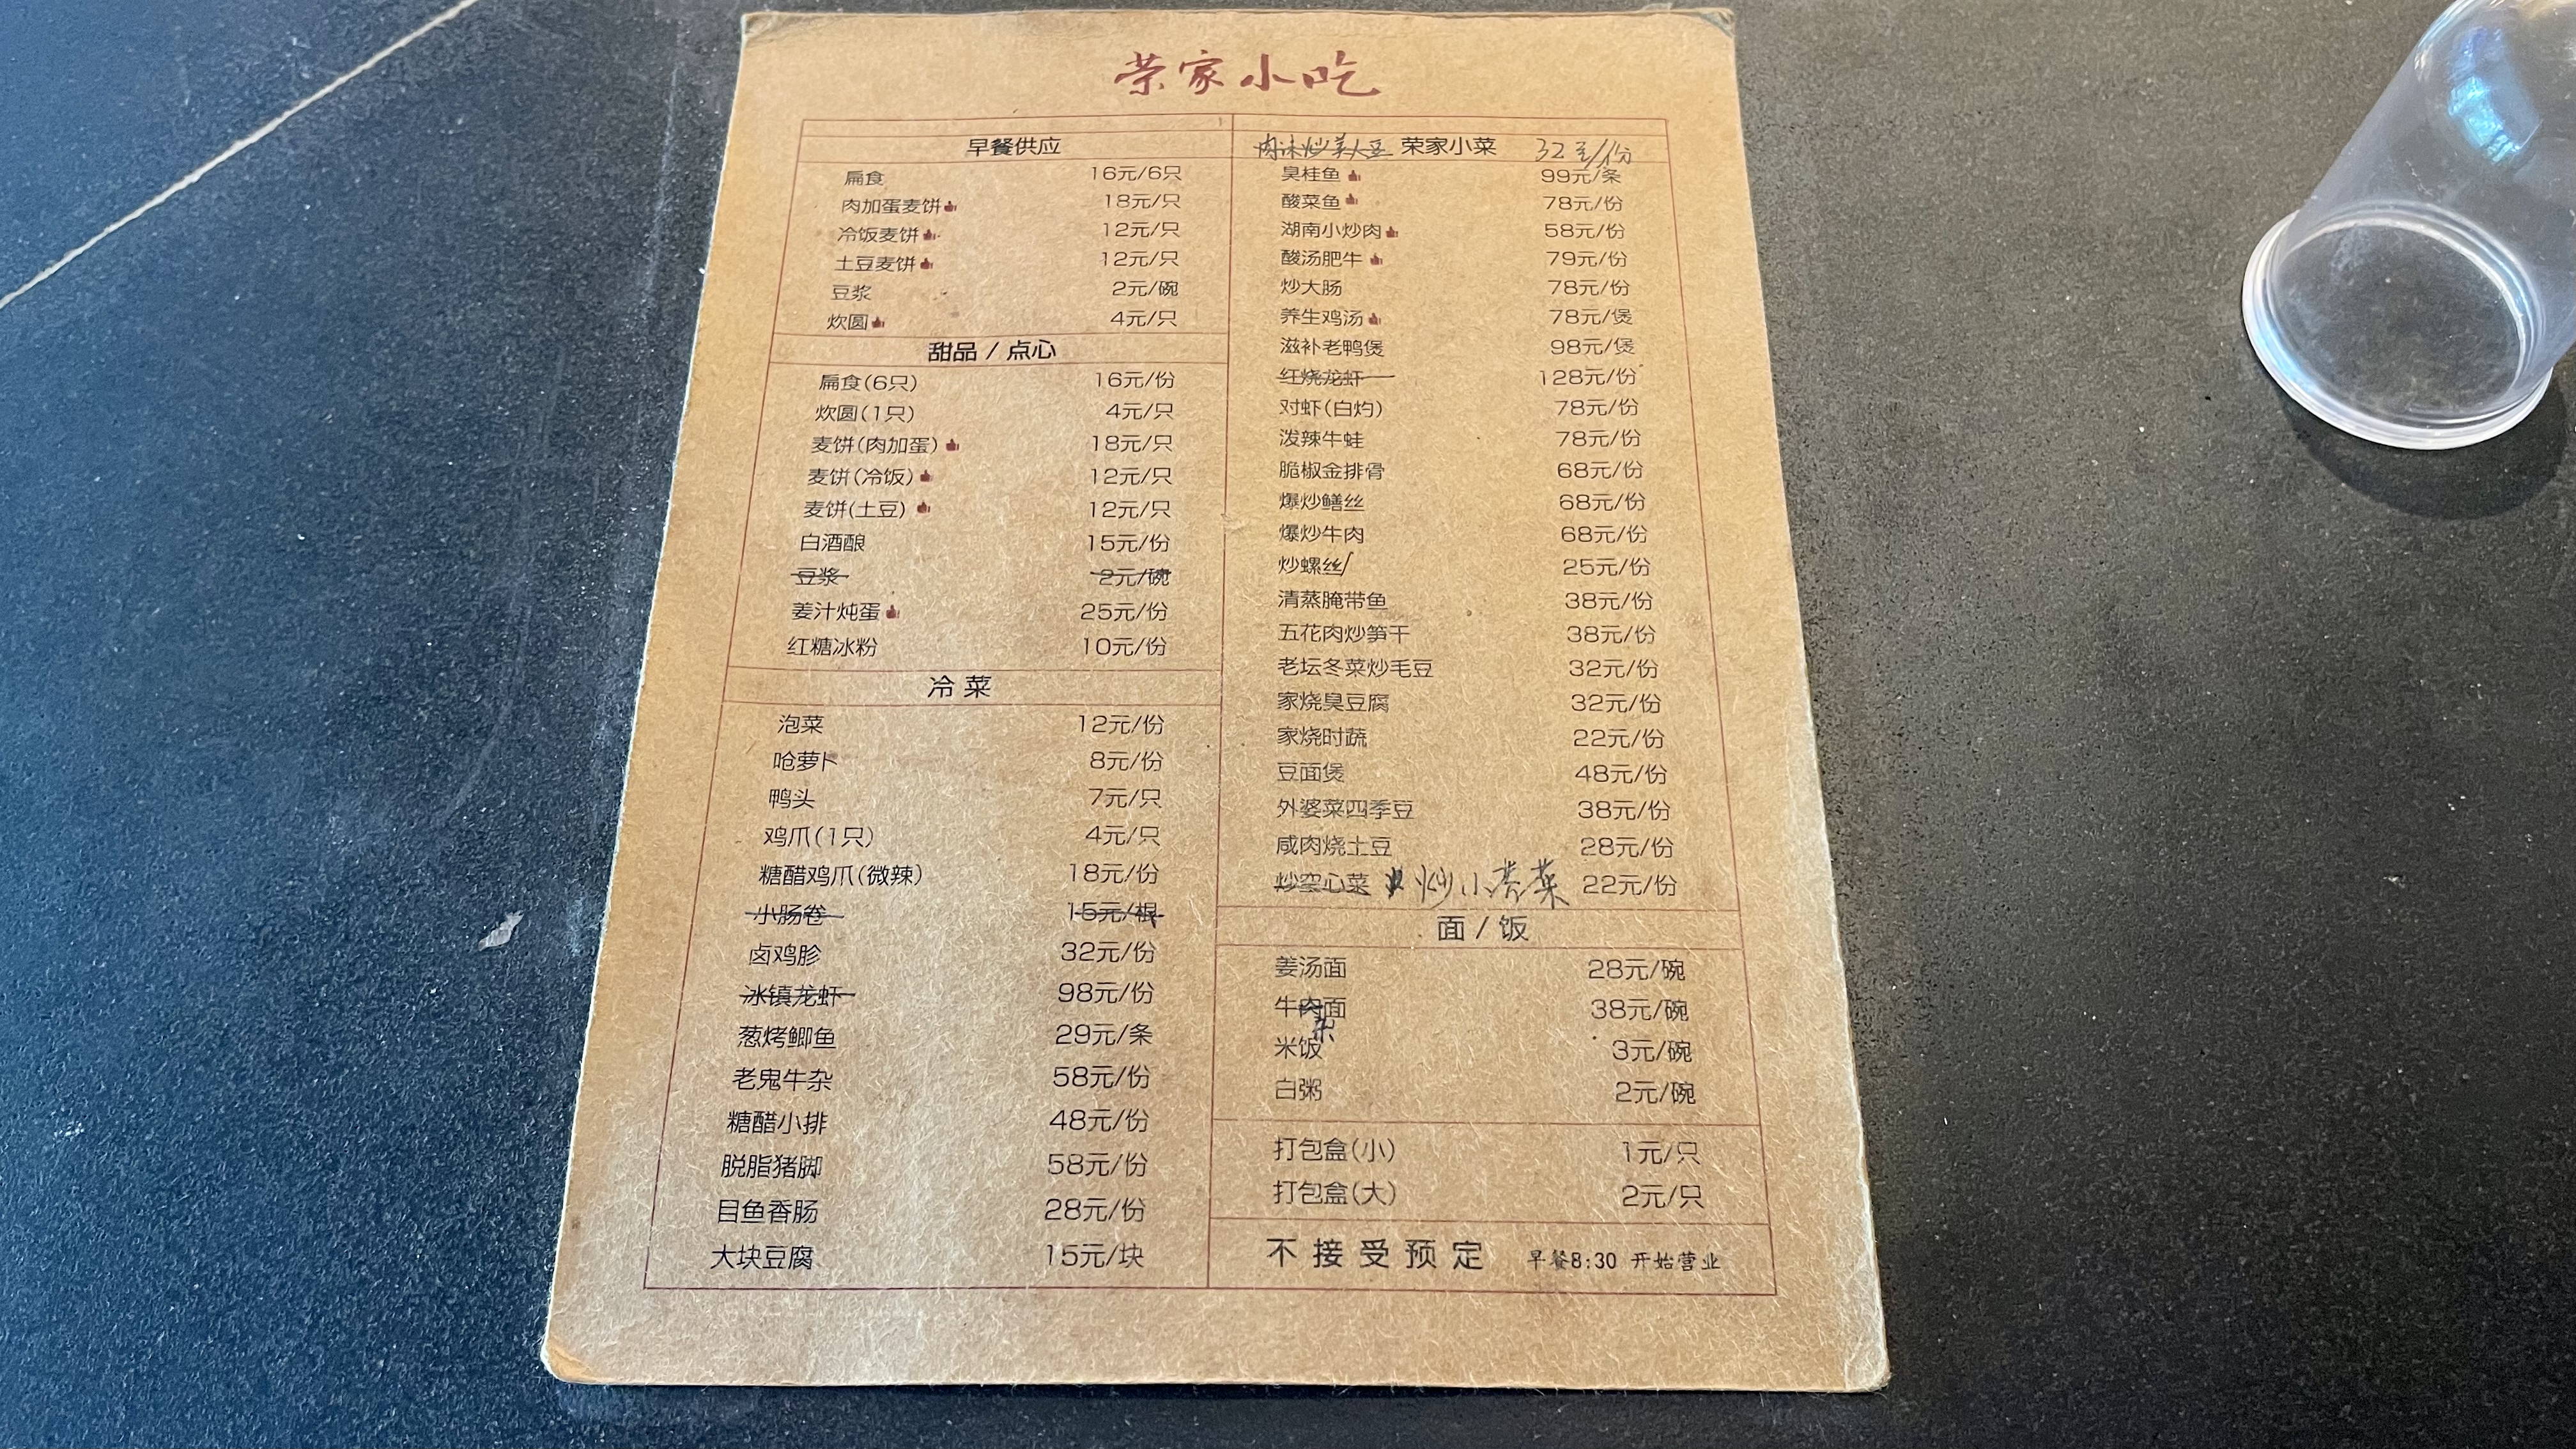 荣家小吃
早餐供应
扁食 16元/6只
肉加蛋麦饼 18元/只
冷饭麦饼 12元/只
土豆麦饼 12元/只
豆浆 2元/碗
炊圆 4元/只
甜品 / 点心
扁食(6只) 16元/份
炊圆(1只) 4元/只
麦饼(肉加蛋) 18元/只
麦饼(冷饭) 12元/只
麦饼(土豆) 12元/只
白酒酿 15元/份
豆浆 2元/碗
姜汁炖蛋 25元/份
红糖冰粉 10元/份
冷菜
泡菜 12元/份
呛萝卜 8元/份
鸭头 7元/只
鸡爪(1只) 4元/只
糖醋鸡爪(微辣) 18元/份
小肠卷 15元/根
卤鸡胗 32元/份
冰镇龙虾 98元/份
葱烤鲫鱼 29元/条
老鬼牛杂 58元/份
糖醋小排 48元/份
脱脂猪脚 58元/份
目鱼香肠 28元/份
大块豆腐 15元/块
肉沫炒美人豆 荣家小菜 32元/份
臭桂鱼 99元/条
酸菜鱼 78元/份
湖南小炒肉 58元/份
酸汤肥牛 79元/份
炒大肠 78元/份
养生鸡汤 78元/煲
滋补老鸭煲 98元/煲
红烧龙虾 128元/份
对虾(白灼) 78元/份
泼辣牛蛙 78元/份
脆椒金排骨 68元/份
爆炒鳝丝 68元/份
爆炒牛肉 68元/份
炒螺丝 25元/份
清蒸腌带鱼 38元/份
五花肉炒笋干 38元/份
老坛冬菜炒毛豆 32元/份
家烧臭豆腐 32元/份
家烧时蔬 22元/份
豆面煲 48元/份
外婆菜四季豆 38元/份
咸肉烧土豆 28元/份
炒空心菜 炒小青菜 22元/份
面 / 饭
姜汤面 28元/碗
牛肉面 38元/碗
杂
米饭 3元/碗
白粥 2元/碗
打包盒(小) 1元/只
打包盒(大) 2元/只
不接受预定 早餐8:30 开始营业